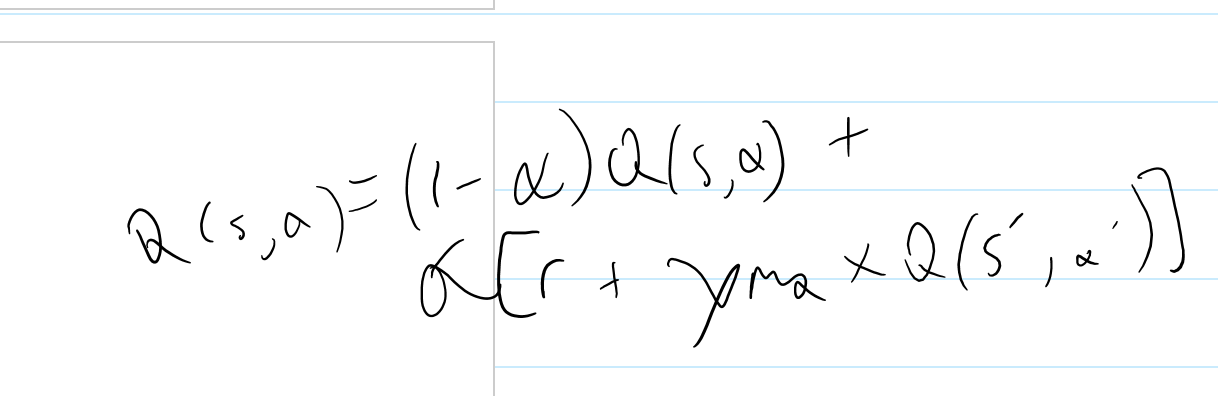 Q(s,a)=(1-α)Q(s,a) +
α[r + γ max Q(s',a')]